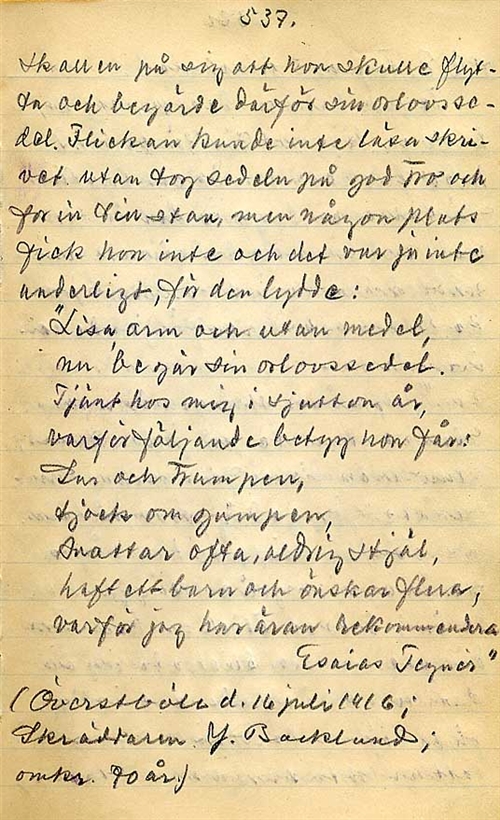 537.
skallen på sig att hon skulle flyt-
ta och begärde därför sin orlovsse-
del. Flickan kunde inte läsa skri-
vet utan tog sedeln på god tro och
for in till stan, men någon plats
fick hon inte och det var ju inte
underligt, för den lydde:
"Lisa, arm och utan medel,
nu begär sin orlovssedel.
Tjänt hos mig i sjutton år,
varför följande betyg hon får:
Lur och trumpen,
tjock om gumpen,
snattar ofta, aldrig stjäl,
haft ett barn och önskar flera,
varför jag har äran rekommendera
Esaias Tegnér"
( d. 16 juli 1916;
Skräddaren Y. Backlund,
omkr. 70 år.)